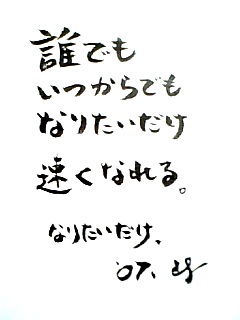 誰でも
いつからでも
なりたいだけ
速くなれる。
なりたいだけ、
'07.